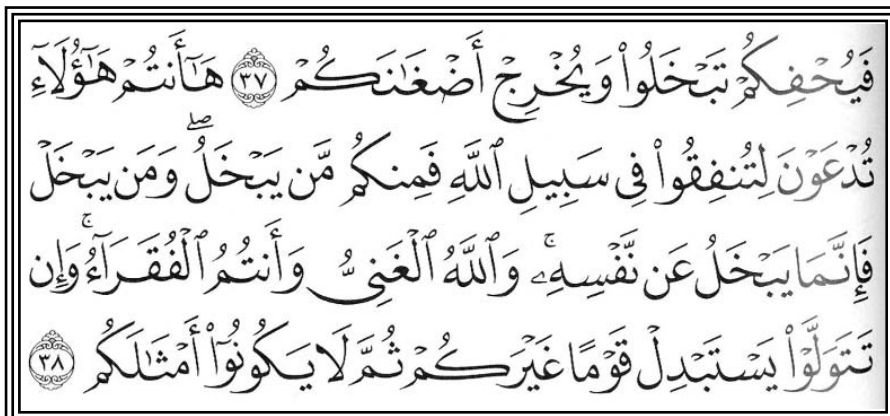 فَيُحْفِكُمْ تَبْخَلُوا۟ وَيُخْرِجْ أَضْغَـٰنَكُمْ ٣٧ هَـٰٓأَنتُمْ هَـٰٓؤُلَآءِ
تُدْعَوْنَ لِتُنفِقُوا۟ فِى سَبِيلِ ٱللَّهِ فَمِنكُم مَّن يَبْخَلُ ۖ وَمَن يَبْخَلْ
فَإِنَّمَا يَبْخَلُ عَن نَّفْسِهِۦ ۚ وَٱللَّهُ ٱلْغَنِىُّ وَأَنتُمُ ٱلْفُقَرَآءُ ۚ وَإِن
تَتَوَلَّوْا۟ يَسْتَبْدِلْ قَوْمًا غَيْرَكُمْ ثُمَّ لَا يَكُونُوٓا۟ أَمْثَـٰلَكُم ٣٨